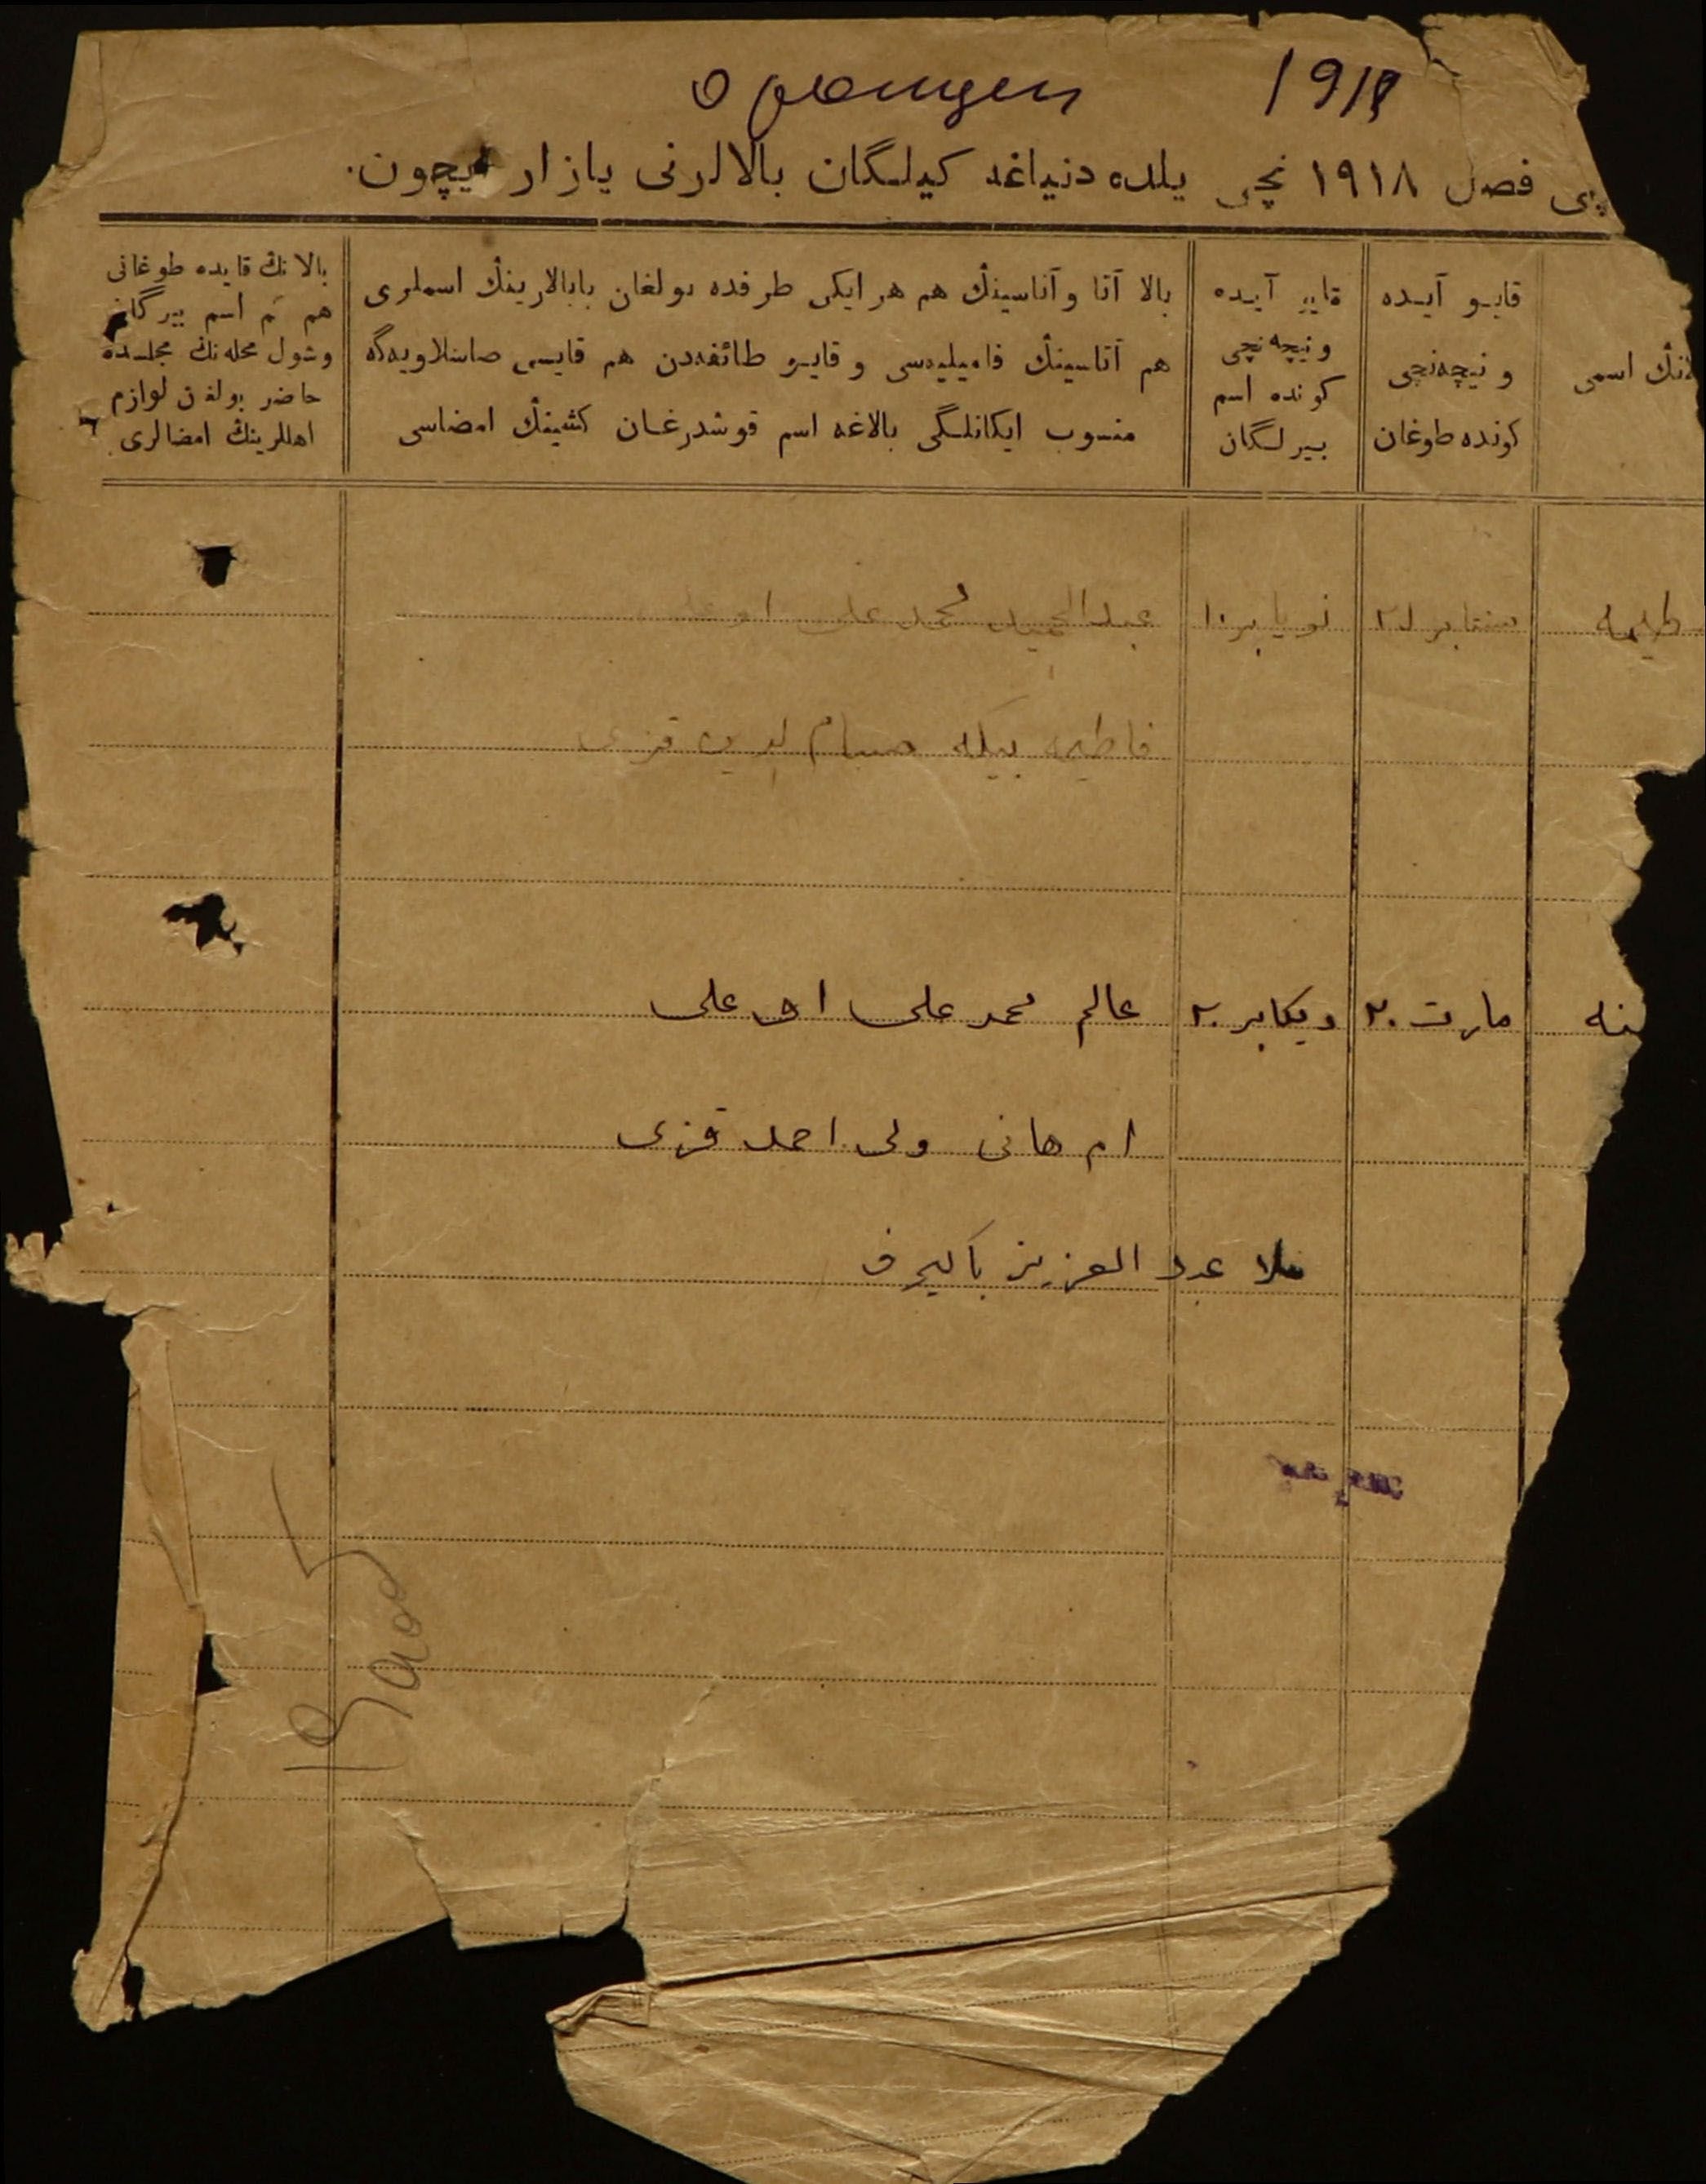 О рожденiи 1918
چی فصل ۱۹۱۸ نچی یلده دنیاغه کیلگان بالالرنی یازار ایچون.
نڭ اسمی
قایو آیده
و نیچه‌نچی
کونده طوغان
قایو آیده
و نیچه نچی
کونده اسم
بیرلگان
بالا آتا و آناسینڭ هم هر ایکی طرفده بولغان بابالارینڭ اسملری
هم آتاسینڭ فامیلیه‌سی و قایو طائفه‌دن هم قایسی صاسلاویه‌گه
منسوب ایکانلگی بالاغه اسم قوشدرغان کشینڭ امضاسی
بالانڭ قایده طوغانی
هم نم اسم بیرگان
وشول محله‌نڭ مجلسده
حاضر بولغن لوازم
اهللرینڭ امضالری
سنتابر نویابر ۱۰ عبدالحمید محمد علی اوغلی
فاطیمه بیکه قزی
نه مارت ۲۰ دیکابر ۲۰ عالم محمد علی اوغلی
ام هانی ولی احمد قزی
ملا عبد العزیز باکیرف